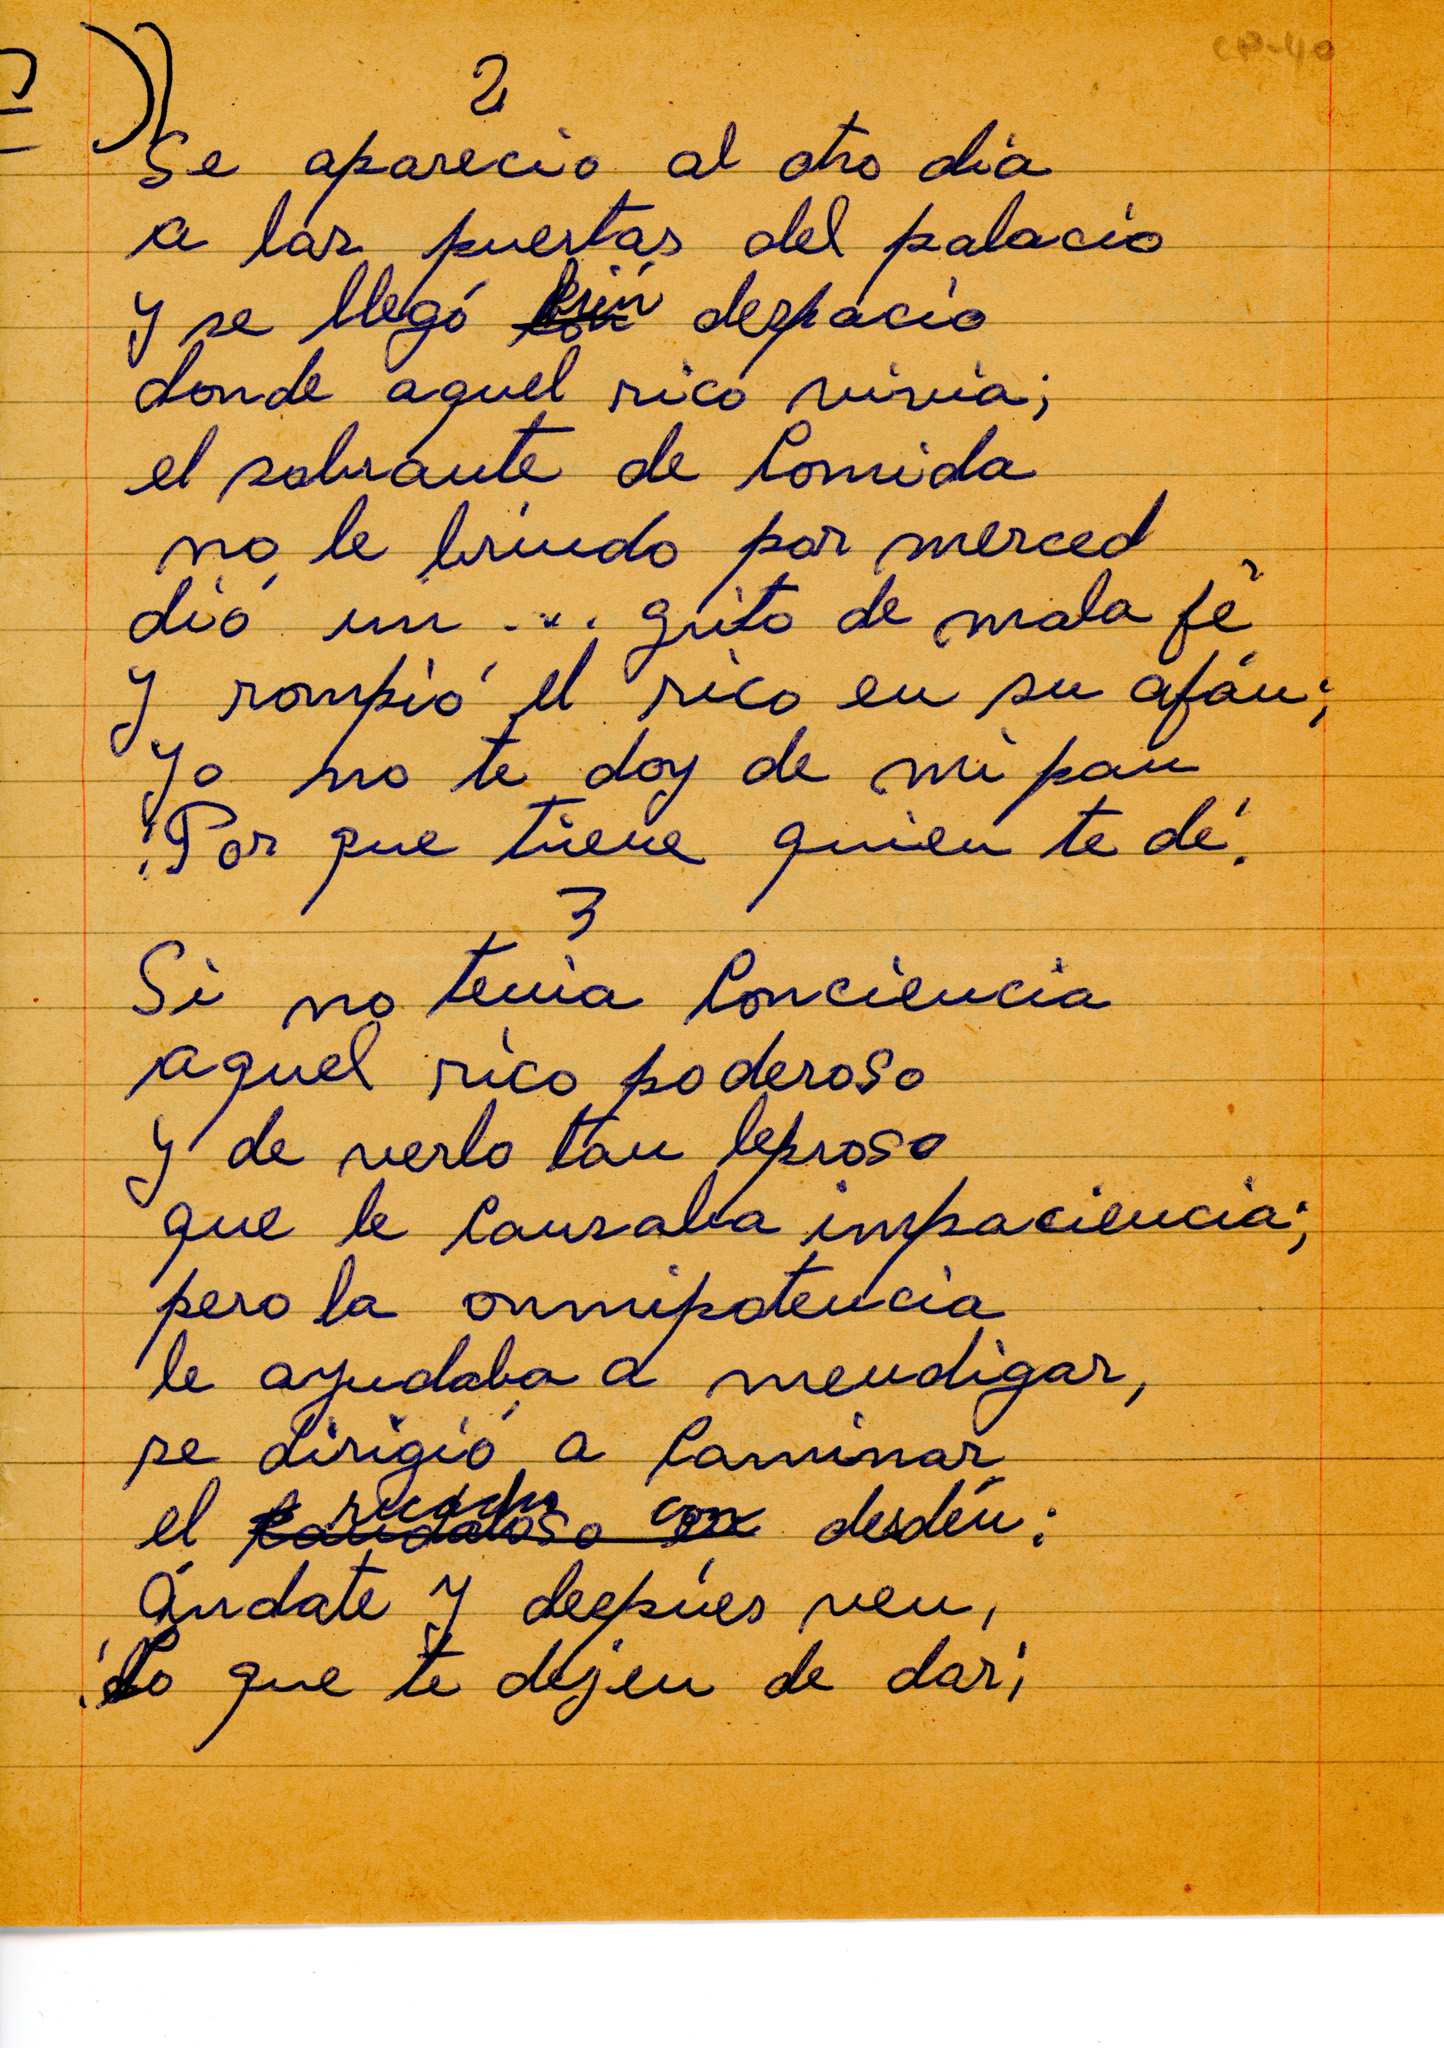 CP-40
2
Se aparecio al otro dia
a las puertas del palacio
y se llegó bien despacio
donde aquel rico vivia;
el sobrante de Comida
no le brindo por merced
dió un ... grito de mala fé
y rompió el rico en su afán;
Yo no te doy de mi pan
¡Por que tiene quien te dé!
3
Si no tenia Conciencia
aquel rico poderoso
y de verlo tan leproso
que le Causaba impaciencia;
pero la onmipotencia
le ayudaba a mendigar,
se dirigió a Caminar
el con desdén:
Ándate y despúes ven,
¡Lo que te dejen de dar¡